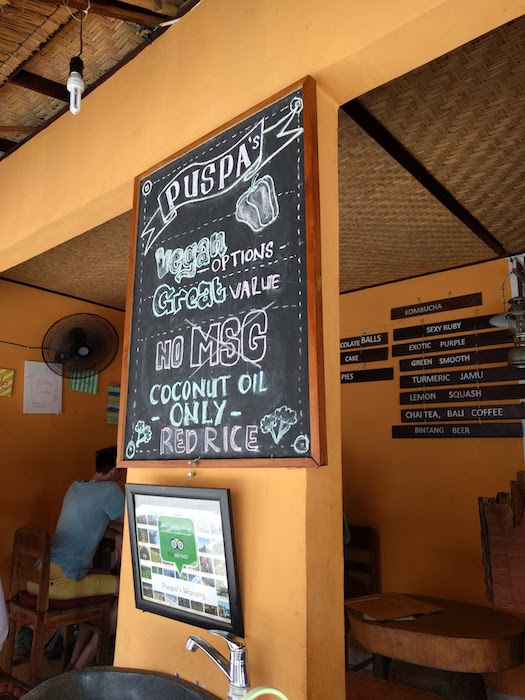 PUSPA's
Vegan OPTIONS -
Great VALUE
NO MSG
COCONUT OIL
- ONLY -
RED RICE
Puspa's Warung
KOMBUCHA
SEXY RUBY
EXOTIC PURPLE
GREEN SMOOTH
TURMERIC JAMU
LEMON SQUASH
CHAI TEA, BALI COFFEE
BINTANG BEER
COLATE BALLS
CAKE
PIES